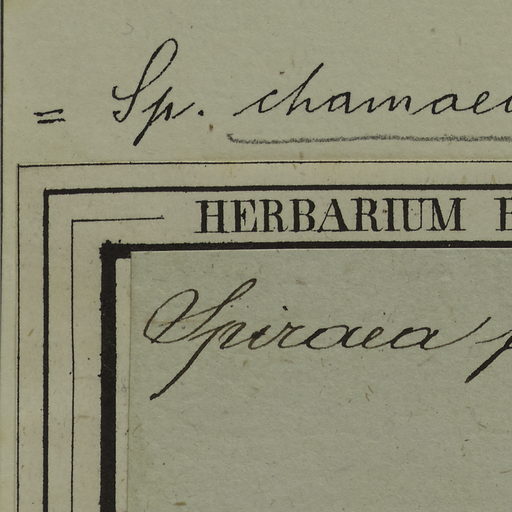 = Sp. chamae
HERBARIUM
Spiraea